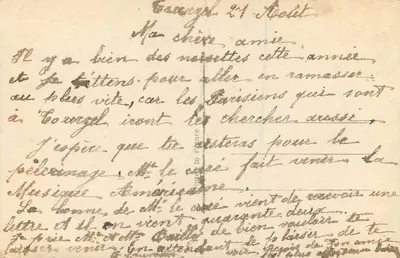 Tourzel 21 Août
Ma chère amie
Il y a bien des noisettes cette année
et je t'attens pour aller en ramasser
au plus vite, car les Parisiens qui sont
à Tourzel iront les chercher aussi.
J'espère que tu resteras pour le
pèlerinage. Mr le curé fait venir la
Musique Américaine.
La bonne de Mr le curé vient de recevoir une
lettre et il en vient quarante-deux.
Je prie Mr et Mme de bien vouloir te
laisser venir. En attendant le plaisir de te
voir